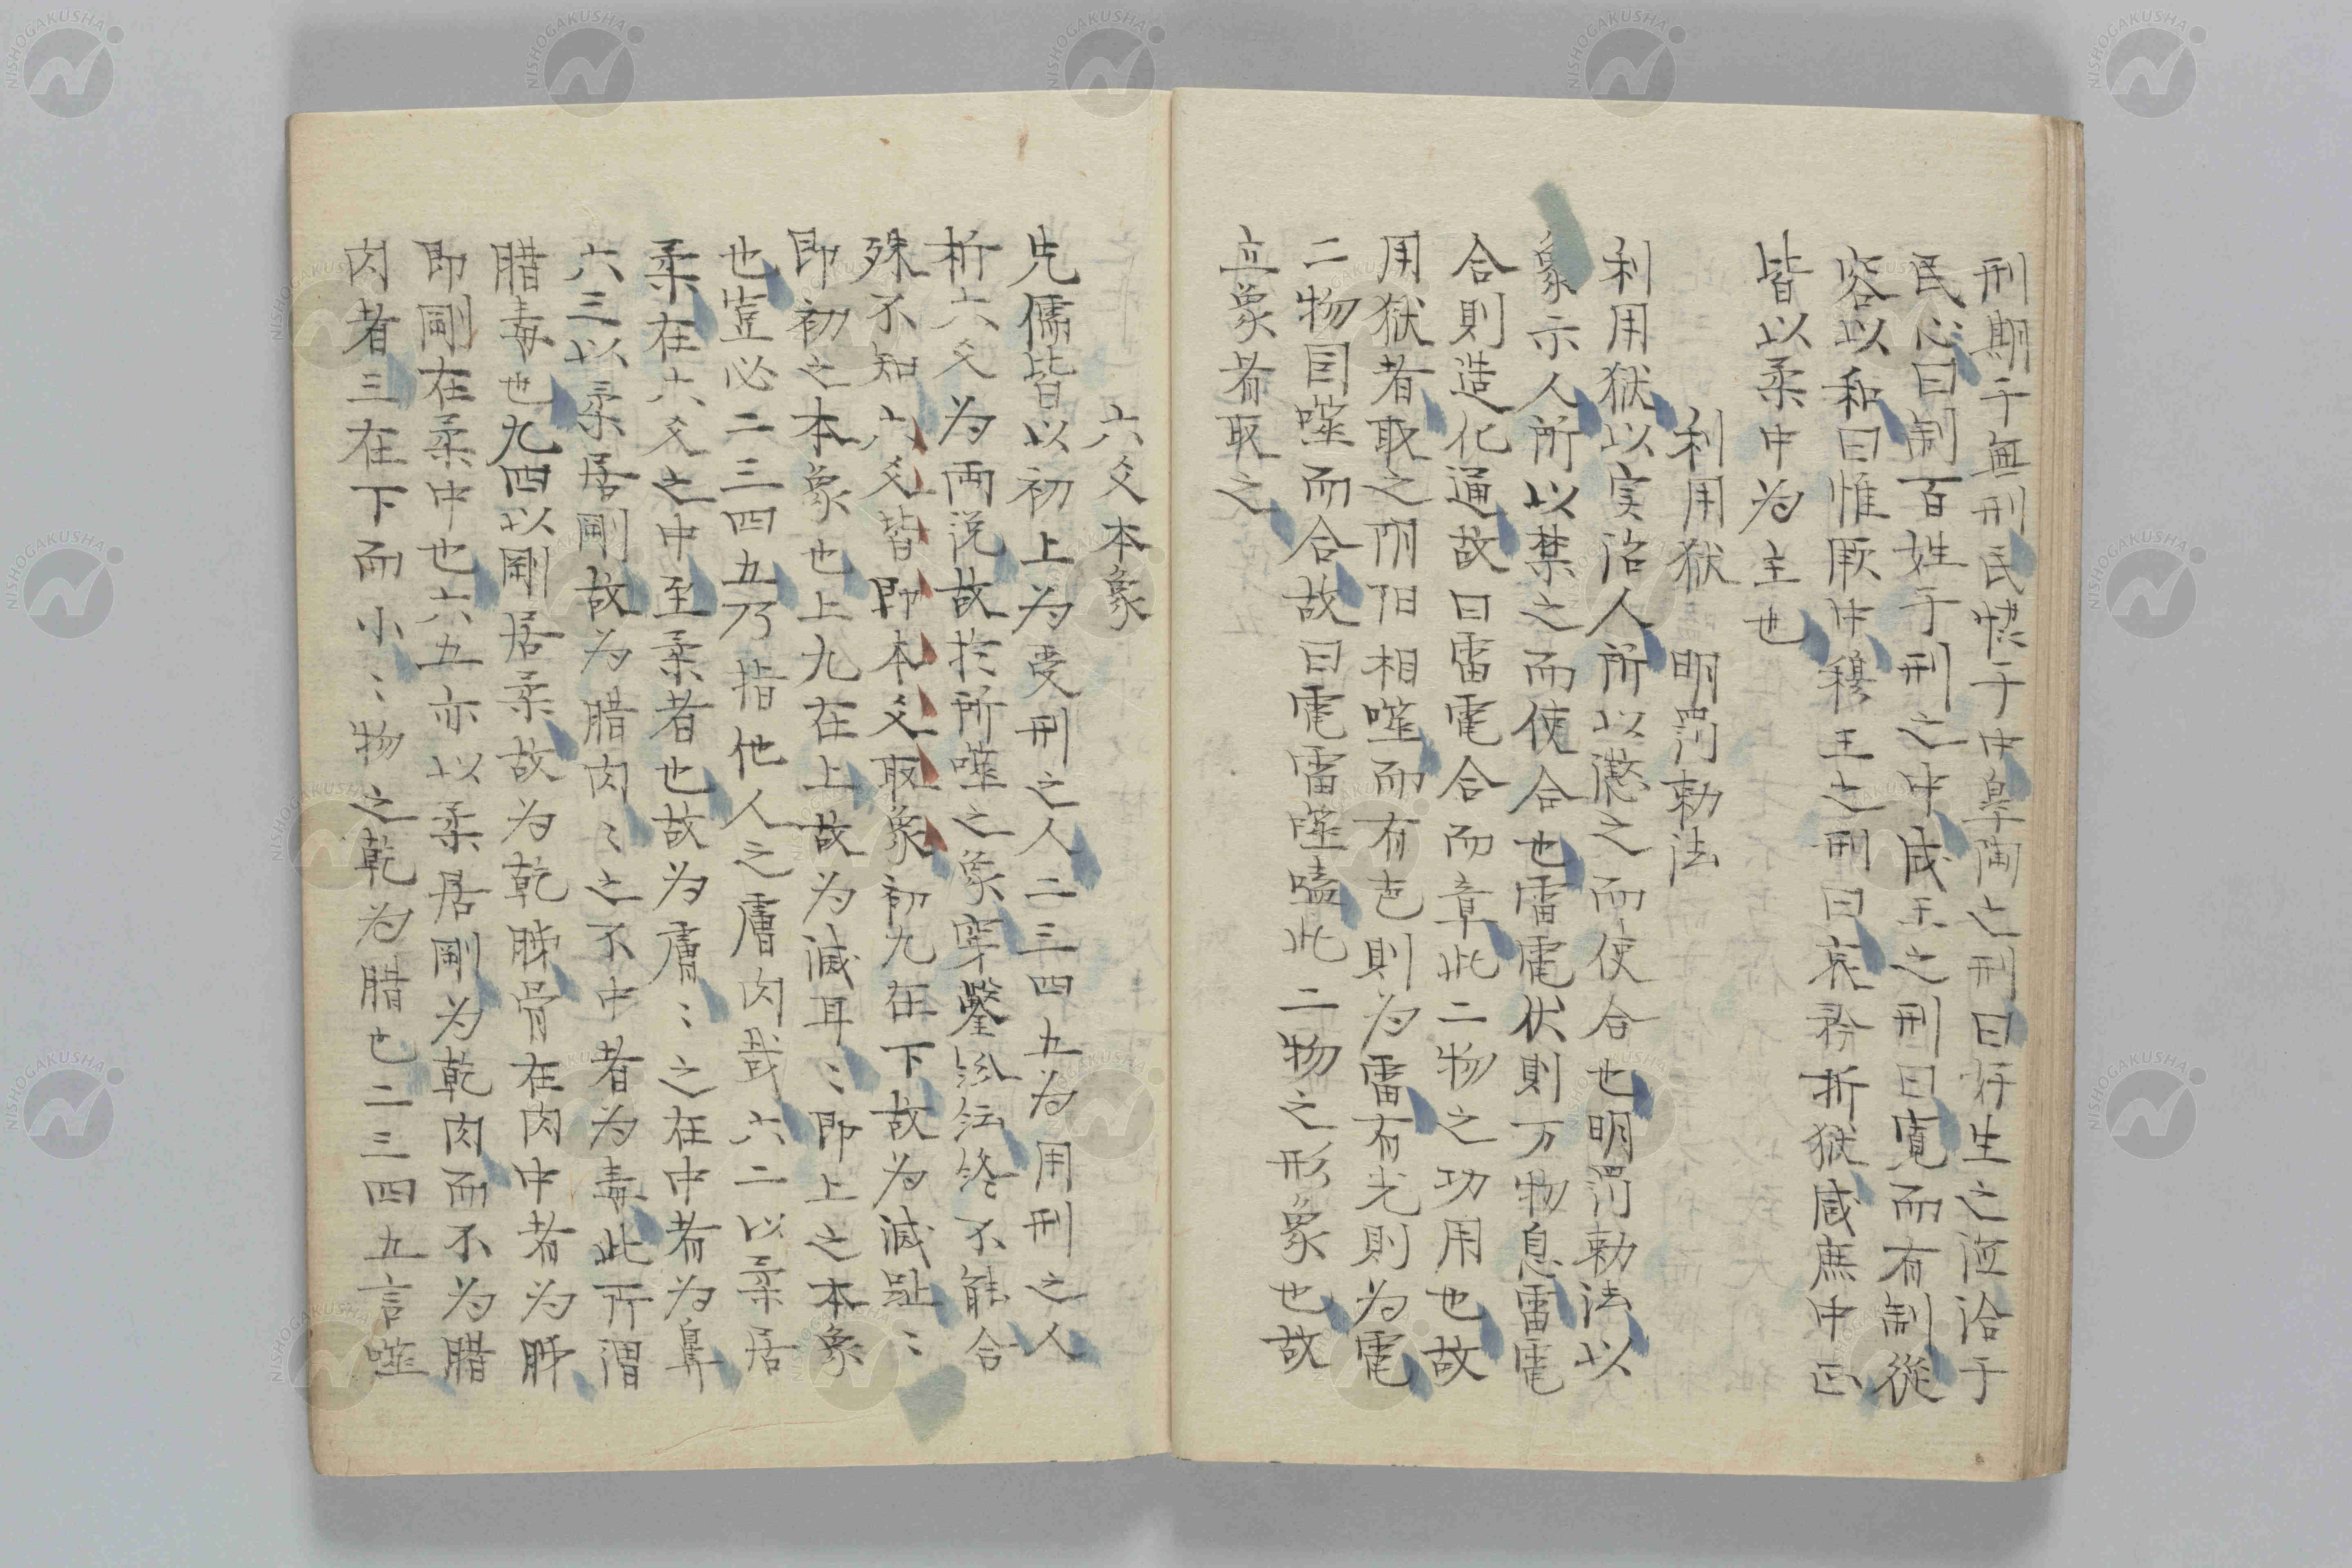 刑期于無刑民恊于中皐陶之刑曰好生之德洽于
民心曰制百姓于刑之中成王之刑曰寛而有制從
容以和曰惟厥中穆王之刑曰哀矜折獄咸庶中正
皆以柔中为主也
利用獄 明罰勅法
利用獄以実治人所以懲之而使合也明罰勅法以
象示人所以禁之而使合也雷電伏則万物息雷電
合則造化通故曰雷電合而章此二物之功用也故
用獄者取之阴阳相噬而有声則为雷有光則为電
二物囯噬而合故曰電雷噬嗑此二物之形象也故
立象者取之
六爻本象
先儒皆以初上为受刑之人二三四五为用刑之人
析六爻为両说故扵所噬之象穿鑿紛紜終不能合
殊不知六爻皆即本爻取象初九在下故为滅趾〻
即初之本象也上九在上故为滅耳〻即上之本象
也豈必二三四五乃指他人之膚肉哉六二以柔居
柔在六爻之中至柔者也故为膚〻之在中者为鼻
六三以柔居剛故为腊肉〻之不中者为毒此所謂
腊毒也九四以剛居柔故为乾胏骨在肉中者为胏
即剛在柔中也六五亦以柔居剛为乾肉而不为腊
肉者三在下而小〻物之乾为腊也二三四五言噬